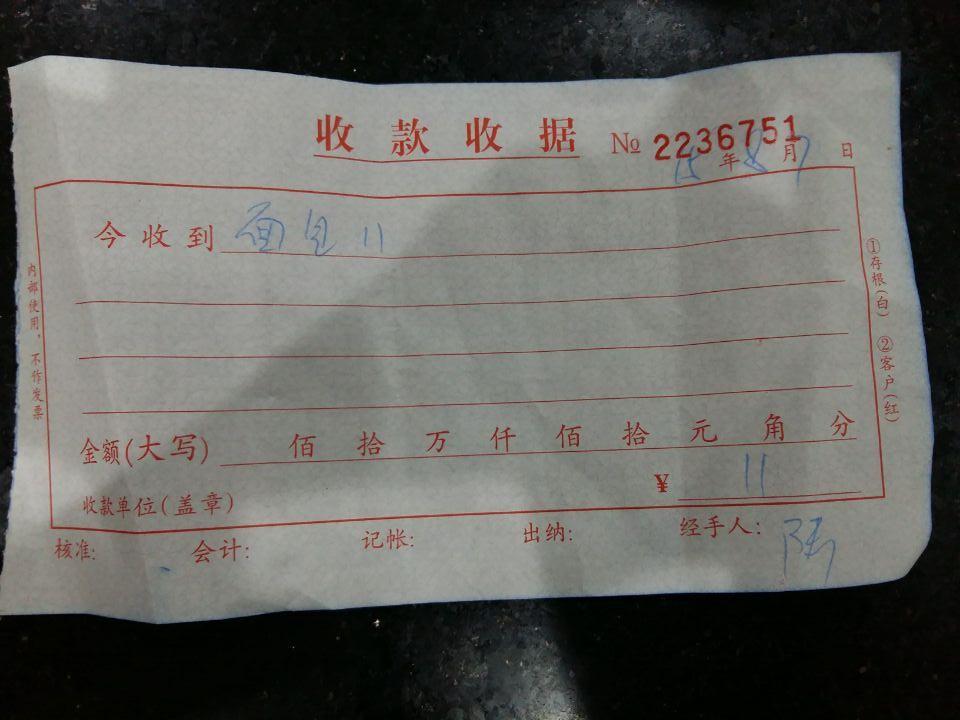 收款收据 № 2236751
15年8月7日
今收到 面包 11
金额(大写) 佰拾万仟佰拾元角分
¥ 11
收款单位(盖章)
核准: 会计: 记帐: 出纳: 经手人: 陆
内部使用，不作发票
①存根(白) ②客户(红)